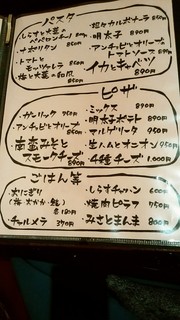 パスタ
・しらすと大葉の
ペペロンチーノ 850円
・ナポリタン 850円
・トマトと
モッツァレラ 850円
・梅と大葉の和風
850円
・温玉カルボナーラ 850円
・明太子 890円
・アンチョビとオリーブの
トマトソース 890円
・イカとキャベツ
890円
ピザ
・ガーリック 750円
・アンチョビとオリーブ
850円
・南蛮みそと
スモークチーズ
890円
・ミックス 890円
・明太ポテト 890円
・マルゲリータ 950円
・生ハムとオニオン 950円
・4種チーズ 1,000円
ごはん等
・大にぎり
(梅 おかか 鮭)
各180円
・チャルメラ 390円
・しらすチャーハン 600円
・焼肉ピラフ 750円
・みさとまんま 800円